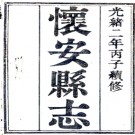 光緒二年丙子續修
懷安縣志